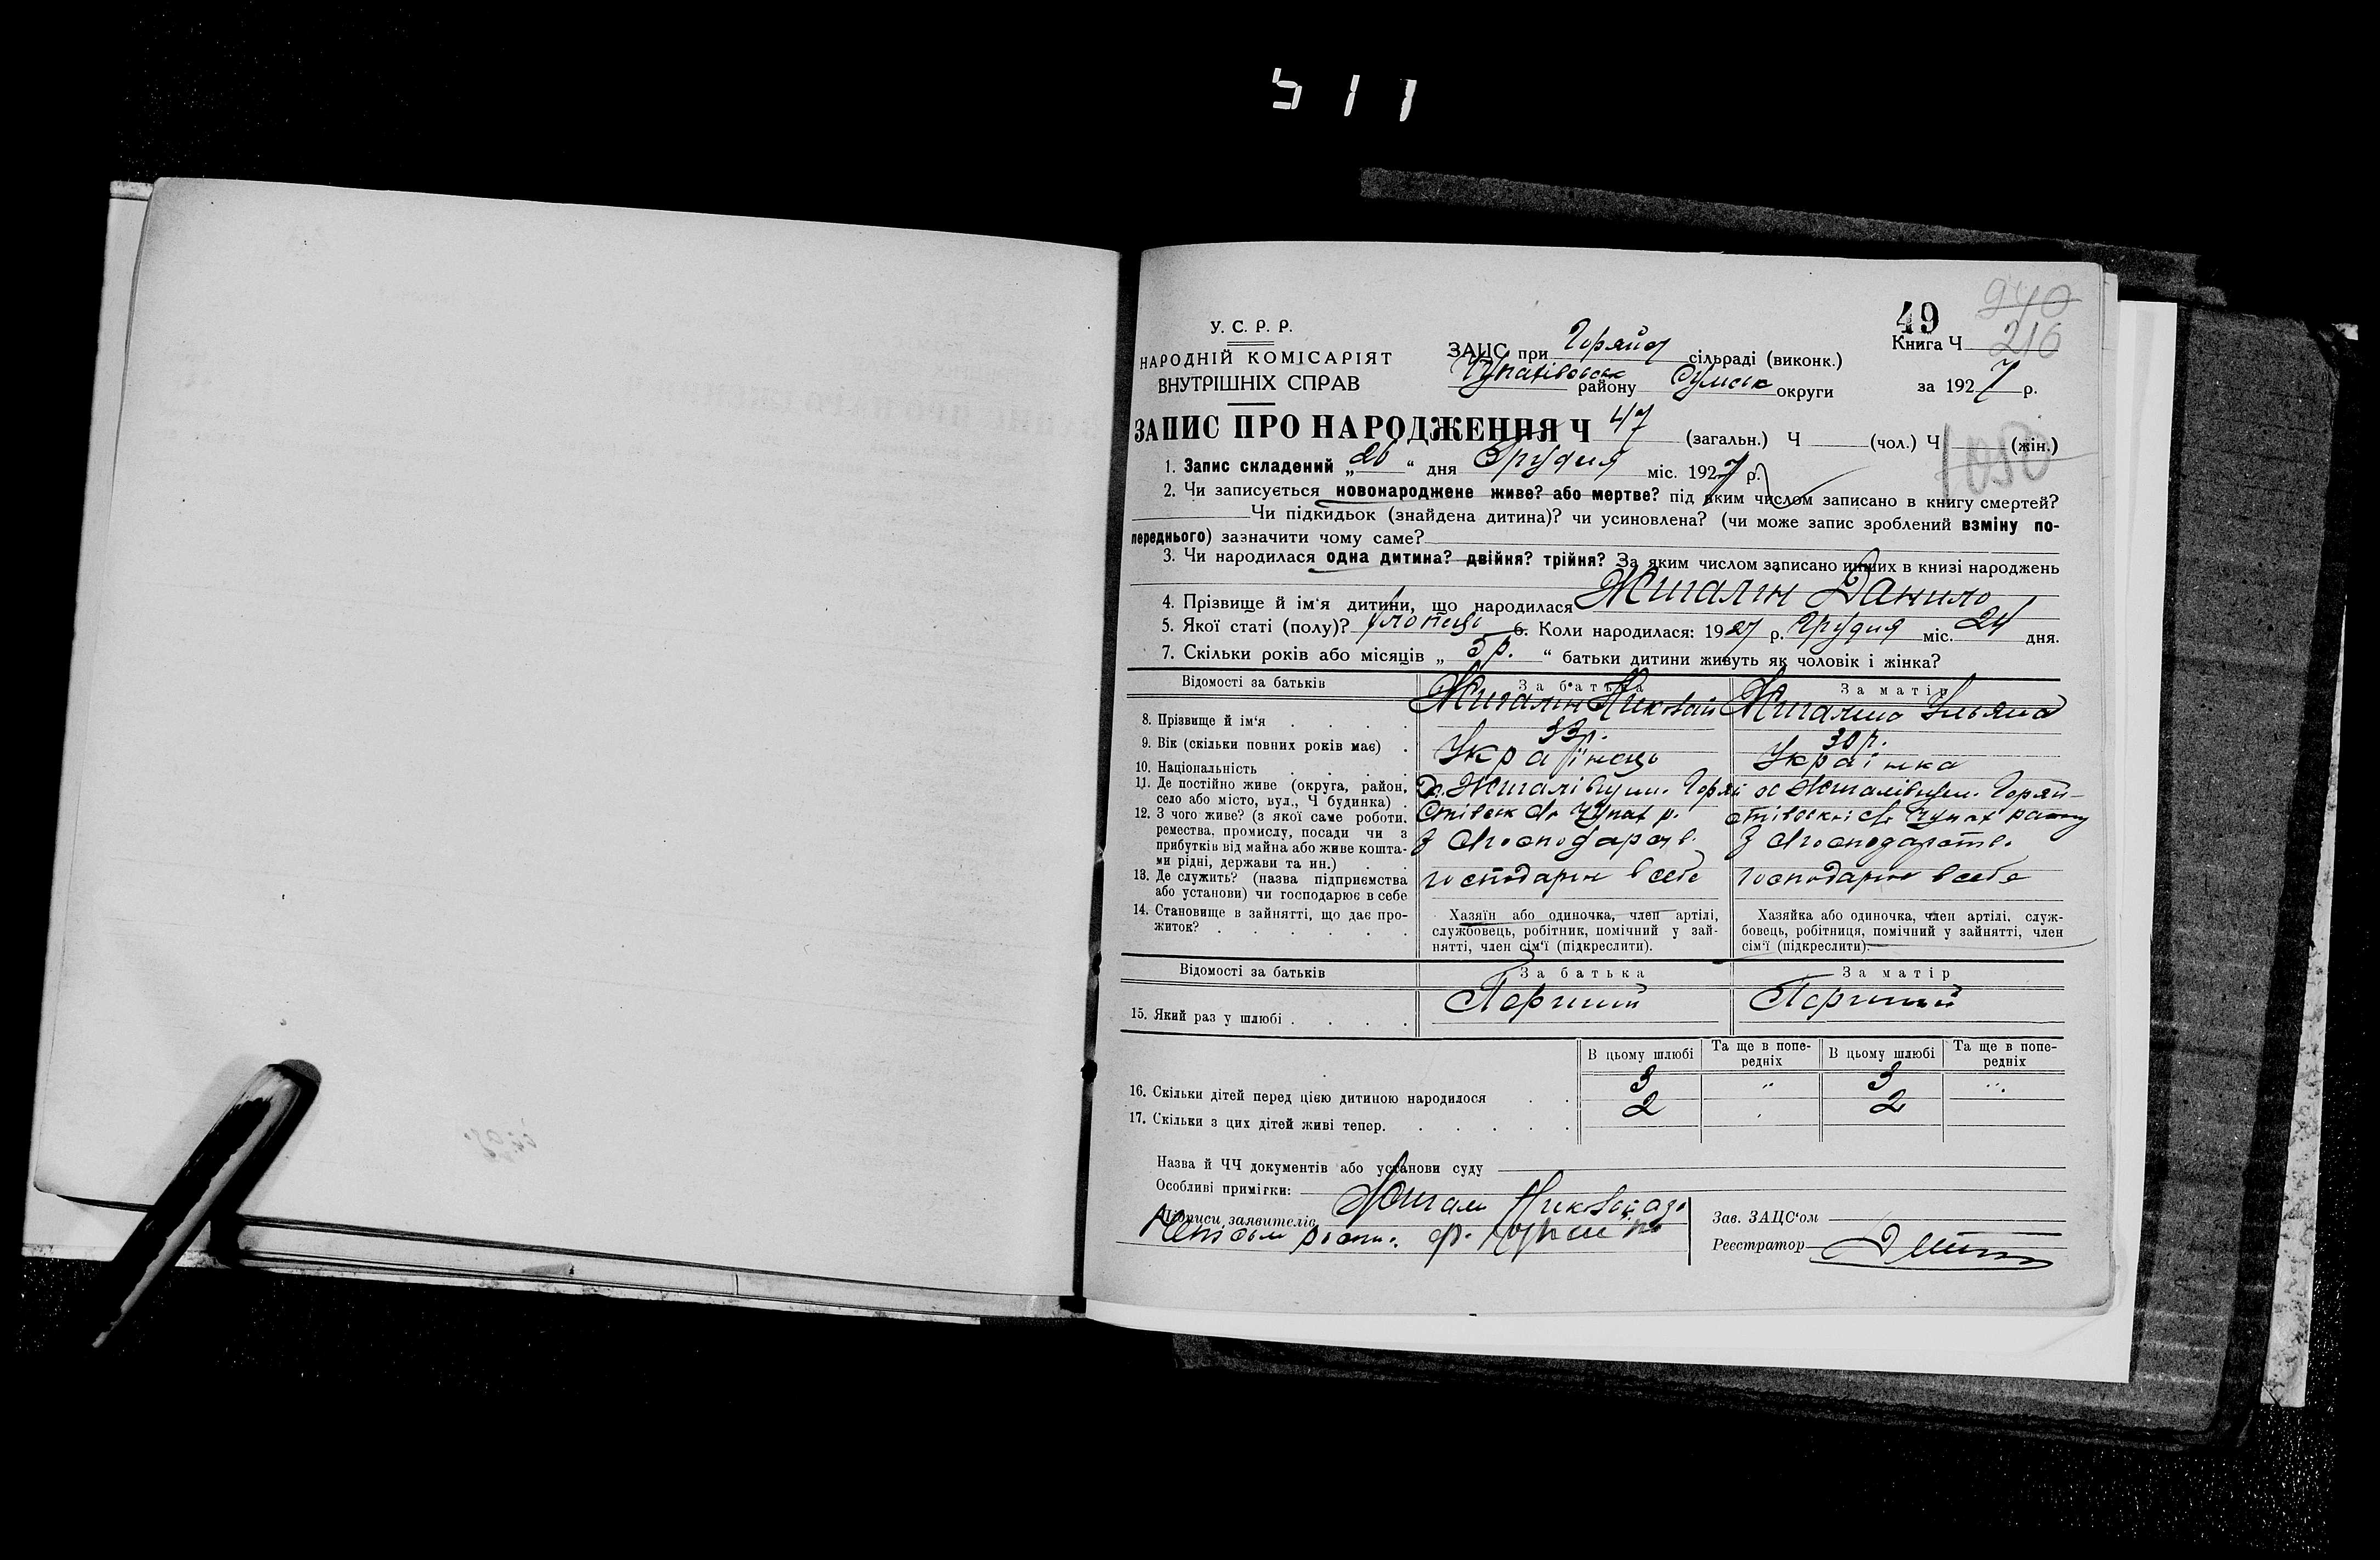 511
940
49
216
У. С. Р. Р.
НАРОДНІЙ КОМІСАРІЯТ
ВНУТРІШНІХ СПРАВ
ЗАЦС при сільраді (виконк.)
району Сумськ округи
Книга Ч
за 1927 р.
ЗАПИС ПРО НАРОДЖЕННЯ Ч 47 (загальн.) Ч (чол.) Ч (жін.)
1050
1. Запис складений „26“ дня Грудня міс. 1927 р.
2. Чи записується новонароджене живе? або мертве? під яким числом записано в книгу смертей?
Чи підкидьок (знайдена дитина)? чи усиновлена? (чи може запис зроблений взміну по-
переднього) зазначити чому саме?
3. Чи народилася одна дитина? двійня? трійня? За яким числом записано инших в книзі народжень
4. Прізвище й ім‘я дитини, що народилася Жигалін Данило
5. Якої статі (полу)? хлопець 6. Коли народилася: 1927 р. Грудня міс. 24 дня.
7. Скільки років або місяців „ 5 р. “ батьки дитини живуть як чоловік і жінка?
Відомості за батьків За батька За матір
8. Прізвище й ім‘я . . . . Жигалін Миколай Жигаліна Ульяна
9. Вік (скільки повних років має) . 33 р. 30 р.
10. Національність . . . . Українець Українка
11. Де постійно живе (округа, район,
село або місто, вул., Ч будинка) .
12. З чого живе? (з якої саме роботи,
ремества, промислу, посади чи з
прибутків від майна або живе кошта-
ми рідні, держави та ин.) . .
13. Де служить? (назва підприємства
або установи) чи господарює в себе
господарює в себе господарює в себе
14. Становище в зайнятті, що дає про-
житок? . . . . . .
Хазяїн або одиночка, член артілі,
службовець, робітник, помічний у зай-
нятті, член сім‘ї (підкреслити).
Хазяйка або одиночка, член артілі, служ-
бовець, робітниця, помічний у зайнятті, член
сім‘ї (підкреслити).
Відомості за батьків За батька За матір
15. Який раз у шлюбі . . . . Перший Перший
В цьому шлюбі Та ще в попе-
редніх В цьому шлюбі Та ще в попе-
редніх
16. Скільки дітей перед цією дитиною народилося . . 3 " 3 "
17. Скільки з цих дітей живі тепер. . . . . . 2 2
Назва й ЧЧ документів або установи суду
Особливі примігки:
Підписи заявителів
Зав. ЗАЦС‘ом
Реєстратор